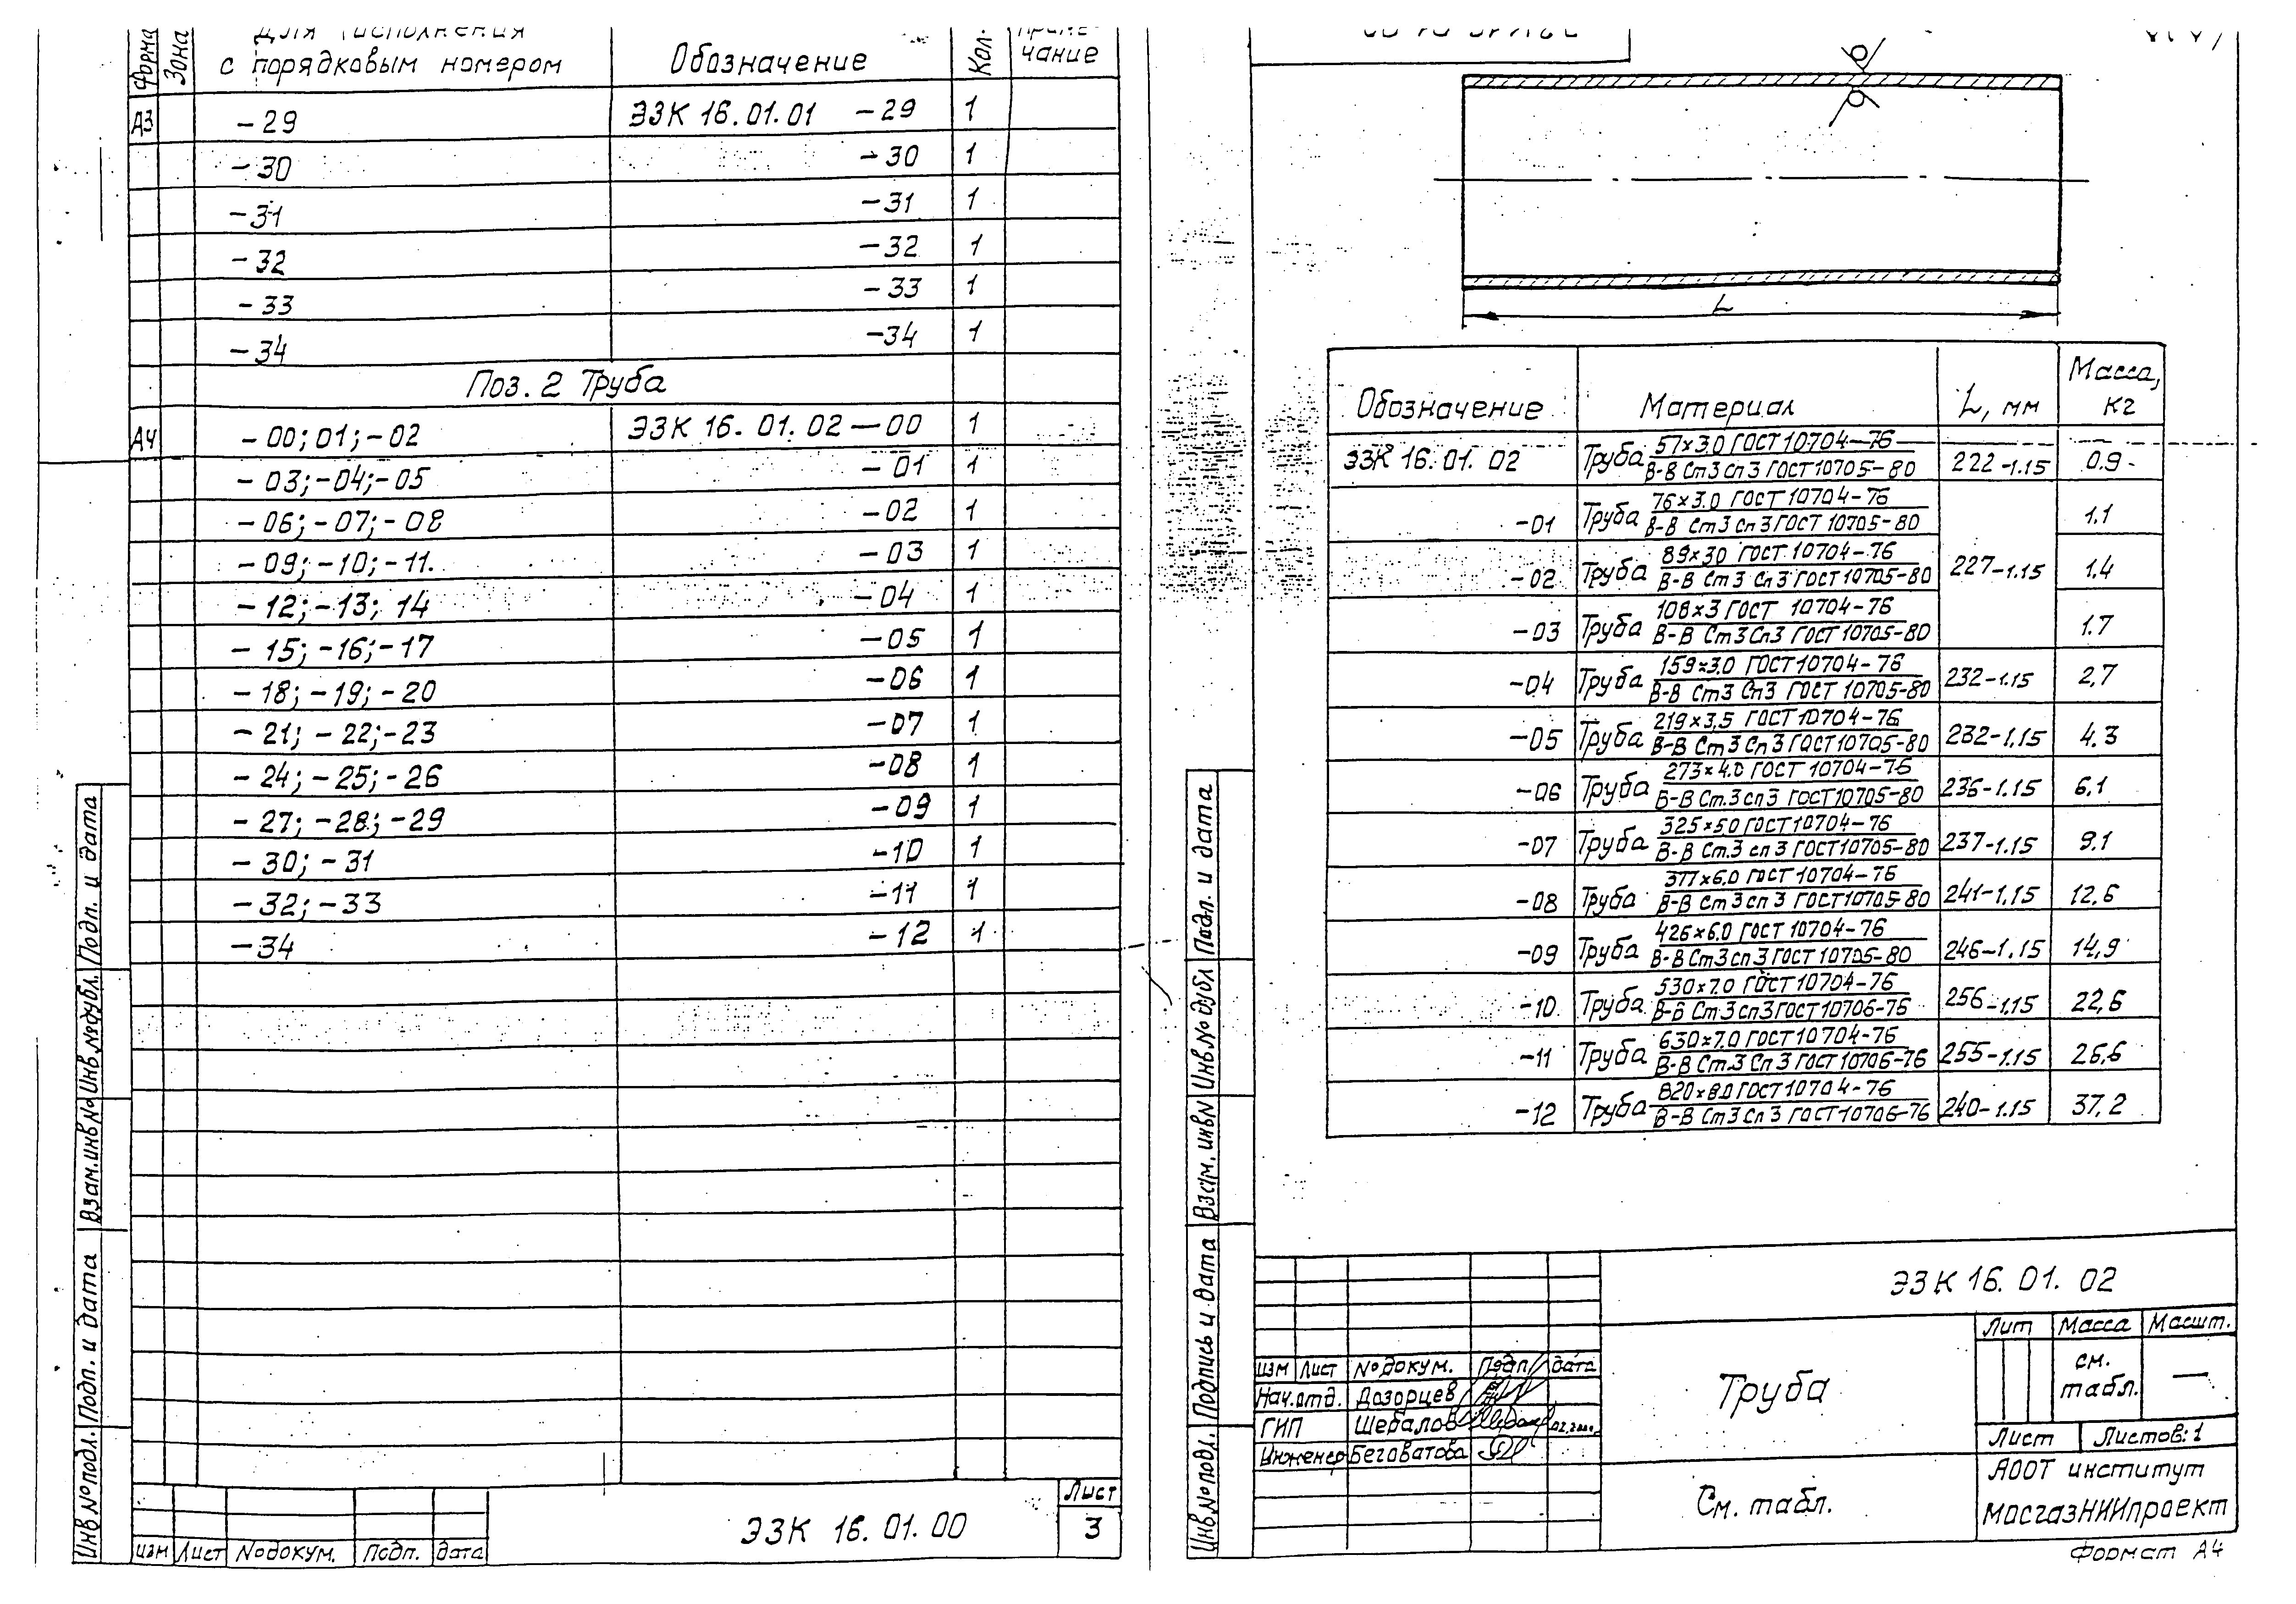 Форма Зона Для исполнения с порядковым номером Обозначение Кол. Примечание
А3 -29 ЭЗК 16.01.01 -29 1
-30 -30 1
-31 -31 1
-32 -32 1
-33 -33 1
-34 -34 1
Поз. 2 Труба
А4 -00; 01; -02 ЭЗК 16.01.02-00 1
-03; -04; -05 -01 1
-06; -07; -08 -02 1
-09; -10; -11. -03 1
-12; -13; 14 -04 1
-15; -16; -17 -05 1
-18; -19; -20 -06 1
-21; -22; -23 -07 1
-24; -25; -26 -08 1
-27; -28; -29 -09 1
-30; -31 -10 1
-32; -33 -11 1
-34 -12 1
Инв.№подл. Подп. и дата Взам.инв№ Инв.№дубл. Подп. и дата
изм Лист №докум. Подп. дата
ЭЗК 16.01.00
Лист
3
L
Обозначение Материал L, мм Масса, кг
ЭЗК 16.01.02 Труба 57×3.0 ГОСТ 10704-76 В-В Ст3 сп3 ГОСТ 10705-80 222-1.15 0.9
-01 Труба 76×3.0 ГОСТ 10704-76 В-В Ст3 Сп3 ГОСТ 10705-80 227-1.15 1.1
-02 Труба 89×30 ГОСТ 10704-76 В-В Ст3 Сп3 ГОСТ 10705-80 1.4
-03 Труба 108×3 ГОСТ 10704-76 В-В Ст3 Сп3 ГОСТ 10705-80 1.7
-04 Труба 159×3.0 ГОСТ 10704-76 В-В Ст3 Сп3 ГОСТ 10705-80 232-1.15 2,7
-05 Труба 219×3,5 ГОСТ 10704-76 В-В Ст3 Сп3 ГОСТ 10705-80 232-1,15 4.3
-06 Труба 273×4.0 ГОСТ 10704-76 В-В Ст.3 сп3 ГОСТ 10705-80 236-1.15 6,1
-07 Труба 325×5.0 ГОСТ 10704-76 В-В Ст.3 сп3 ГОСТ 10705-80 237-1.15 9.1
-08 Труба 377×6,0 ГОСТ 10704-76 В-В Ст3 сп3 ГОСТ 10705-80 241-1,15 12,6
-09 Труба 426×6.0 ГОСТ 10704-76 В-В Ст3 сп3 ГОСТ 10705-80 246-1.15 14,9
-10 Труба 530×7.0 ГОСТ 10704-76 В-В Ст3 сп3 ГОСТ 10706-76 256-1,15 22,6
-11 Труба 630×7.0 ГОСТ 10704-76 В-В Ст.3 Сп3 ГОСТ 10706-76 255-1.15 26,6
-12 Труба 820×8.0 ГОСТ 10704-76 В-В Ст3 Сп3 ГОСТ 10706-76 240-1.15 37,2
Инв.№подл. Подпись и дата Взам. инв№ Инв.№дубл Подп. и дата
ЭЗК 16.01.02
изм Лист №докум. Подп дата
Нач.отд. Дозорцев
ГИП Шебалов
Инженер Беговатова
Труба
Лит Масса Масшт.
см. табл. —
Лист Листов: 1
См. табл.
АООТ институт
МосгазНИИпроект
Формат А4